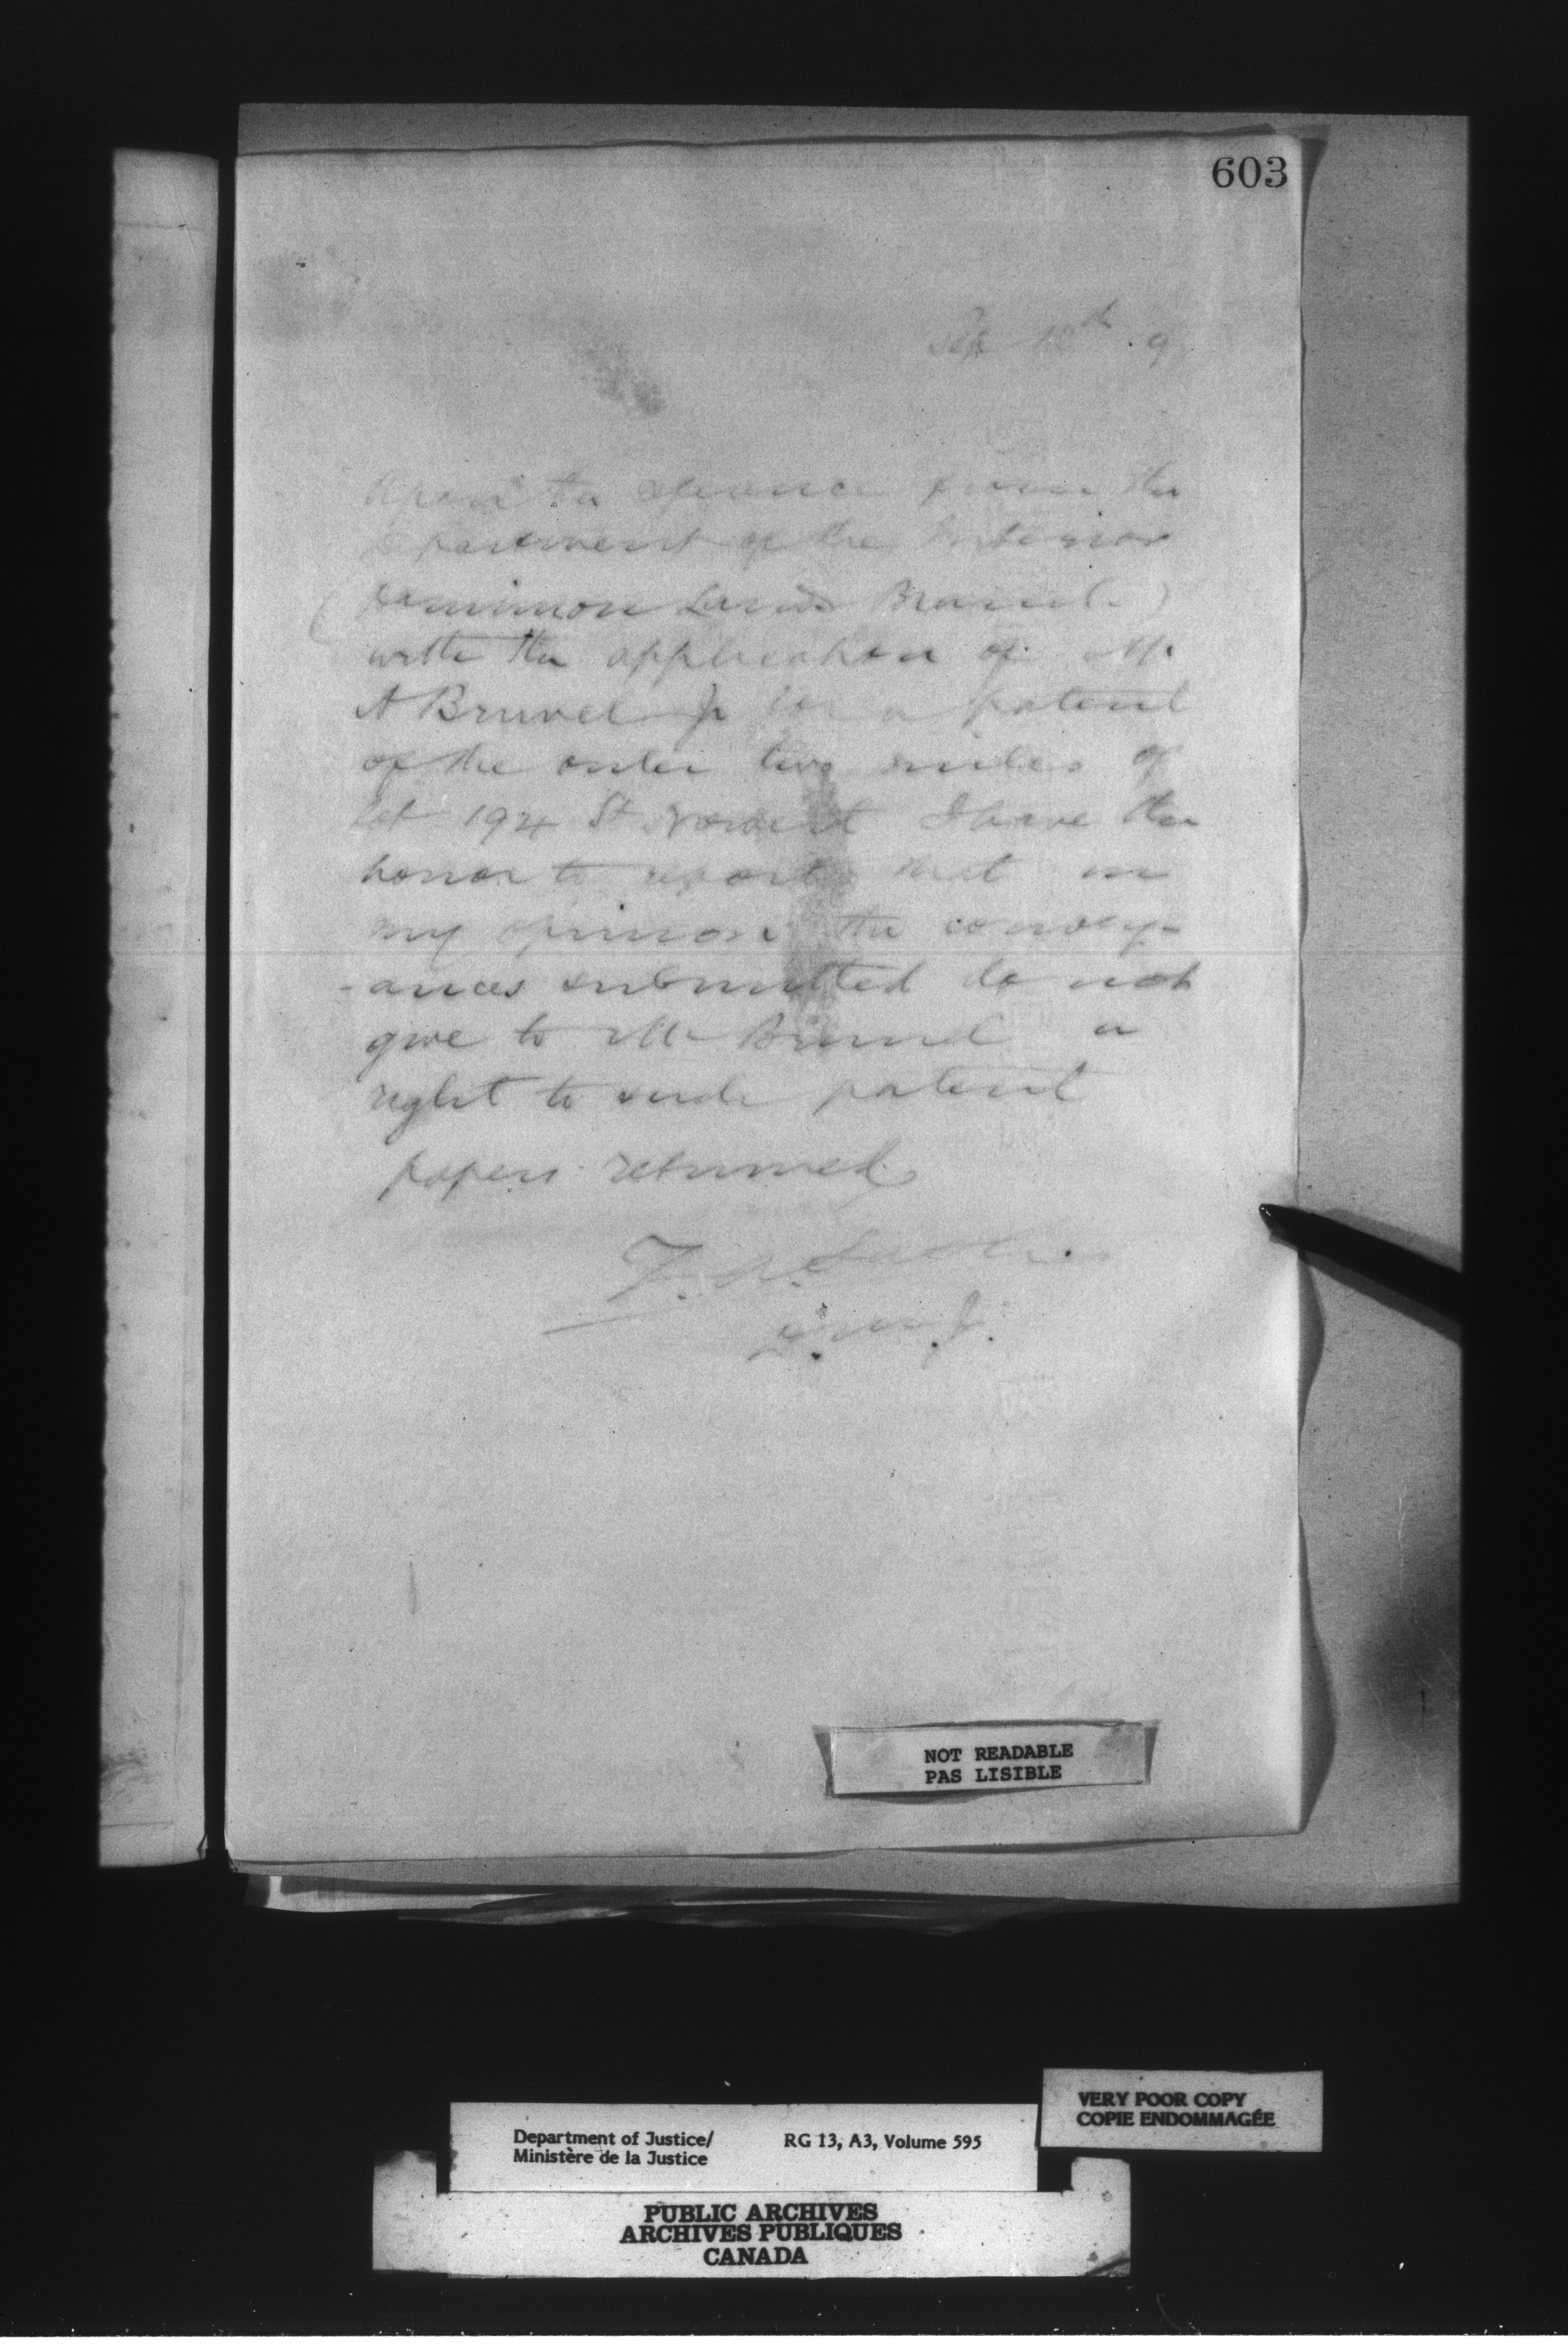 603
Sep 12th 9
Upon the reference from the
Department of the Interior
(Dominion Lands Branch)
with the application of Mr.
A Brunel Jr for a patent
of the outer two miles of
Lot 194 St Norbert I have the
honor to report that in
my opinion the convey-
-ances submitted do not
give to Mr Brunel a
right to such patent
papers returned
D.M.J.
NOT READABLE
PAS LISIBLE
VERY POOR COPY
COPIE ENDOMMAGÉE
Department of Justice/ RG 13, A3, Volume 595
Ministère de la Justice
PUBLIC ARCHIVES
ARCHIVES PUBLIQUES
CANADA